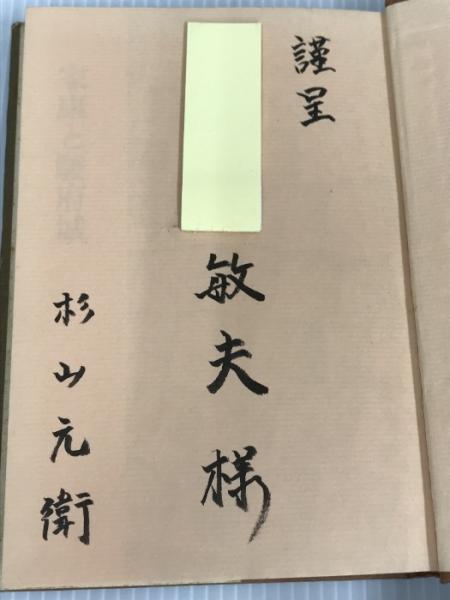 謹呈
敏夫様
杉山元衛